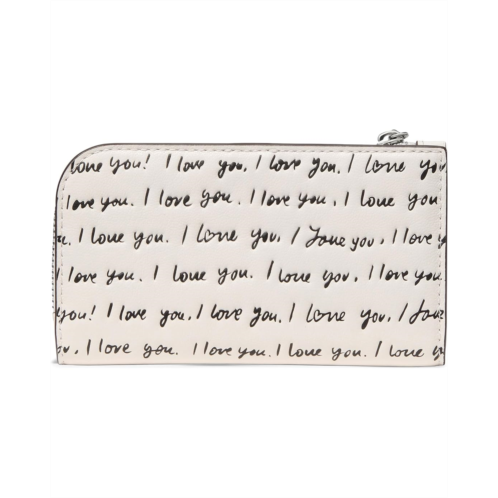 love you! I love you, I love you, I love you
I love you. I love you. I love you, I love you
u. I love you. I love you, I love you, I love
I love you. I love you. I love you, I love you.
you! I love you, I love you, I love you, I love
you, I love you. I love you. I love you. I love y